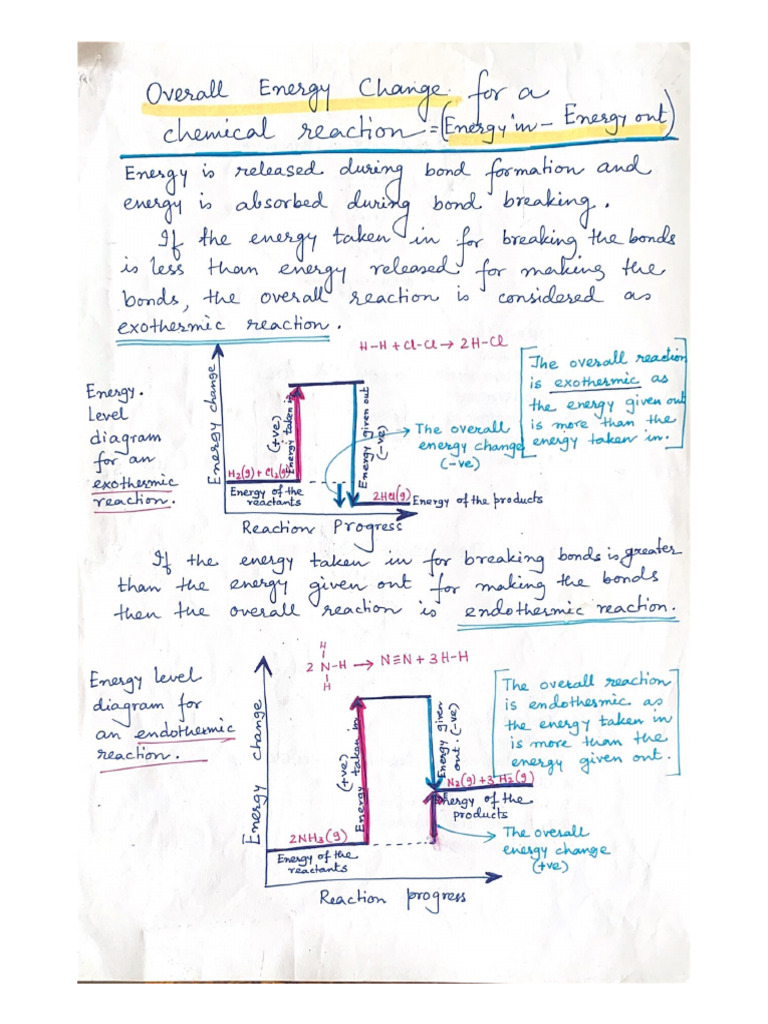 Overall Energy Change for a
chemical reaction = (Energy in - Energy out)
Energy is released during bond formation and
energy is absorbed during bond breaking.
If the energy taken in for breaking the bonds
is less than energy released for making the
bonds, the overall reaction is considered as
exothermic reaction.
H-H + Cl-Cl → 2H-Cl
Energy.
Level
diagram
for an
exothermic
reaction.
Energy change
H₂(g) + Cl₂(g)
Energy of the
reactants
(+ve)
Energy taken in
Energy given out
(-ve)
2HCl(g)
Energy of the products
Reaction Progress
The overall
energy change
(-ve)
[The overall reaction
is exothermic as
the energy given out
is more than the
energy taken in.]
If the energy taken in for breaking bonds is greater
than the energy given out for making the bonds
then the overall reaction is endothermic reaction.
Energy level
diagram for
an endothermic
reaction.
H
2 N-H → N≡N + 3H-H
H
Energy change
2NH₃(g)
Energy of the
reactants
(+ve)
Energy taken in
Energy given
out. (-ve)
N₂(g) + 3H₂(g)
Energy of the
products
The overall
energy change
(+ve)
Reaction progress
[The overall reaction
is endothermic as
the energy taken in
is more than the
energy given out.]